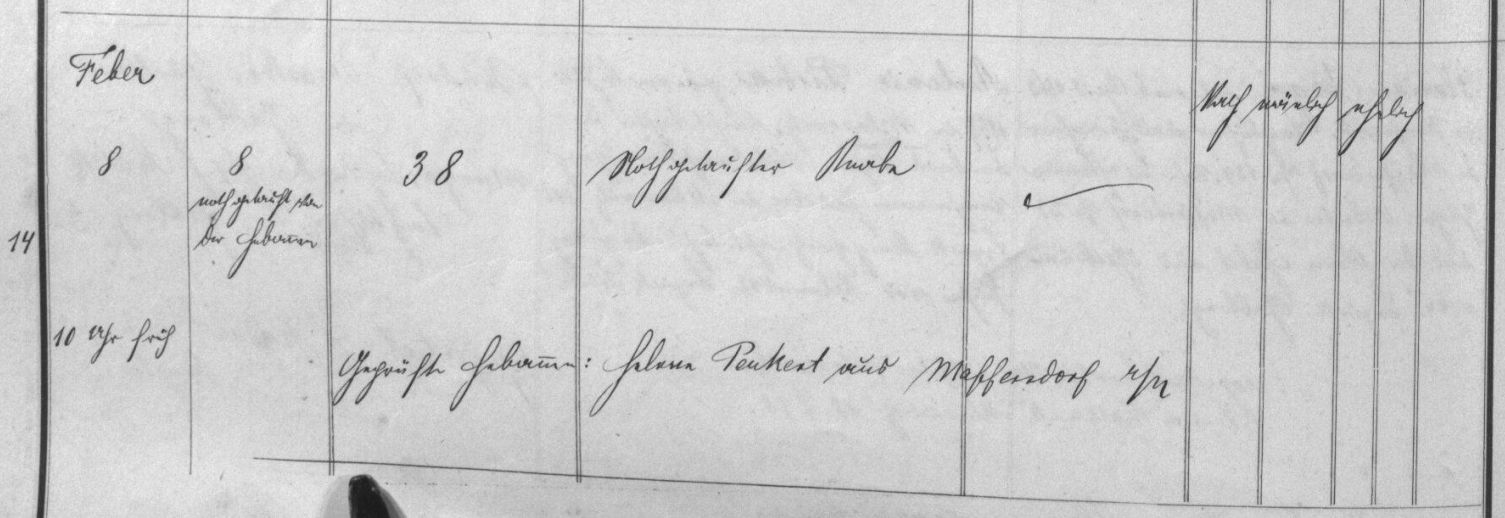 Feber
kath männlich ehelich
8 8 38 Nothgetaufter Knabe
nothgetauft von
der Hebamme
14
10 Uhr früh
Geprüfte Hebamme: Helene Peukert aus Maffersdorf r/N